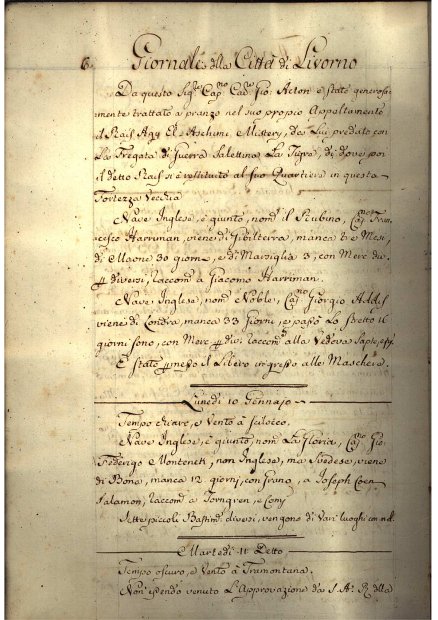 6. Giornale della Città di Livorno
Da questo Sig.re Cap.no Cav.re Gio: Acton è stato generosa
mente trattato a pranzo nel suo proprio Appartamento
il Raìs Agy El Aschimi, Mistery, da Lui predato con
La Fregata di Guerra Salettina La Tigra, di dove poi
il detto Raìs si è restituito al suo Quartiere in questa
Fortezza Vecchia
Nave Inglese, è giunto, nom.a il Rubino, Cap.no Fran
cesco Harriman, viene di Gibilterra, manca tre Mesi,
di Maone 30 giorni, e di Marsiglia 3, con Merc. di
diversi, raccom.a a Giacomo Harriman.
Nave Inglese, nom.a Noble, Cap.no Giorgio Addis
viene di Londra, manca 33 Giorni, e passò Lo Stretto 16
giorni sono, con Merc. div. raccom.a alla Vedova
È stato messo il Libero ingresso alle Maschere.
Lunedì 10 Gennajo
Tempo chiaro, e Vento a Scilocco.
Nave Inglese, è giunto, nom.a La Gloria, Cap.no Gio:
Federigo Monteneti, non Inglese, ma Svedese, viene
di Bona, manca 12 giorni, con Grano, a Joseph Coen
Salamon, raccom.a a Tornqven, e Comp.
Sette piccoli Bastim.ti diversi, vengono di Varj luoghi con
Martedì 11 Detto
Tempo oscuro, e Vento a Tramontana.
Non essendo venuto L'Approvazione da S. A. R. della